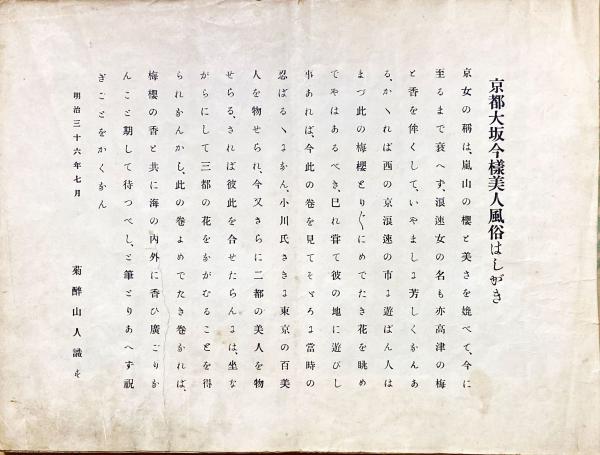 京都大坂今樣美人風俗はしがき
京女の稱は、嵐山の櫻と美さを競べて、今に
至るまで衰へず、浪速女の名も亦高津の梅
と香を倂くして、いやましに芳しくなんあ
る、かゝれば西の京浪速の市に遊ばん人は
まづ此の梅櫻とり〴〵にめでたき花を眺め
でやはあるべき、巳れ甞て彼の地に遊びし
事あれば、今此の卷を見てそゞろに當時の
忍ばるゝになん、小川氏さきに東京の百美
人を物せられ、今又さらに二都の美人を物
せらる、されば彼此を合せたらんには、坐な
がらにして三都の花をかがむることを得
られなんかし、此の卷よめでたき卷なれば、
梅櫻の香と共に海の內外に香ひ廣ごりな
んこと期して待つべし、と筆とりあへず祝
ぎごとをかくなん
明治三十六年七月
菊醉山人識を